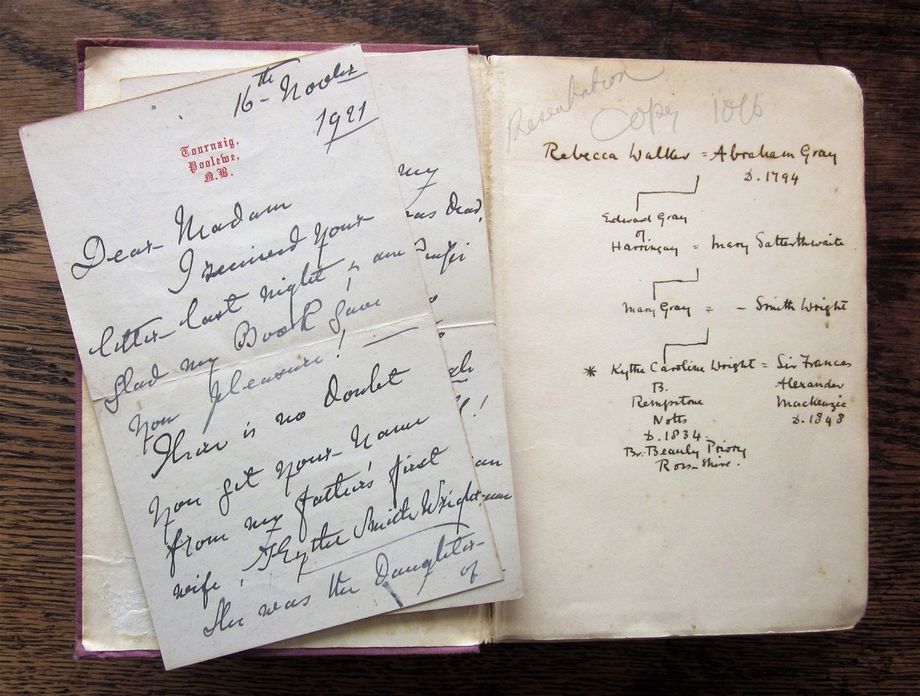 16th Novbr
1921
Tournaig,
Poolewe,
N.B.
Dear Madam
I received your
letter last night & am
glad my Book gave
you pleasure!
There is no doubt
you get your name
from my father's first
wife, Kythe Smith Wright
She was the Daughter
of
my
was dead,
!
an
Presentation
Copy 10/6
Rebecca Walker = Abraham Gray
D. 1794
Edward Gray
of
Harringay = Mary Satterthwaite
Mary Gray = - Smith Wright
* Kythe Caroline Wright = Sir Frances
B. Alexander
Rempstone Mackenzie
Notts D. 1848
D. 1834
Br. Beauly Priory
Ross-shire.